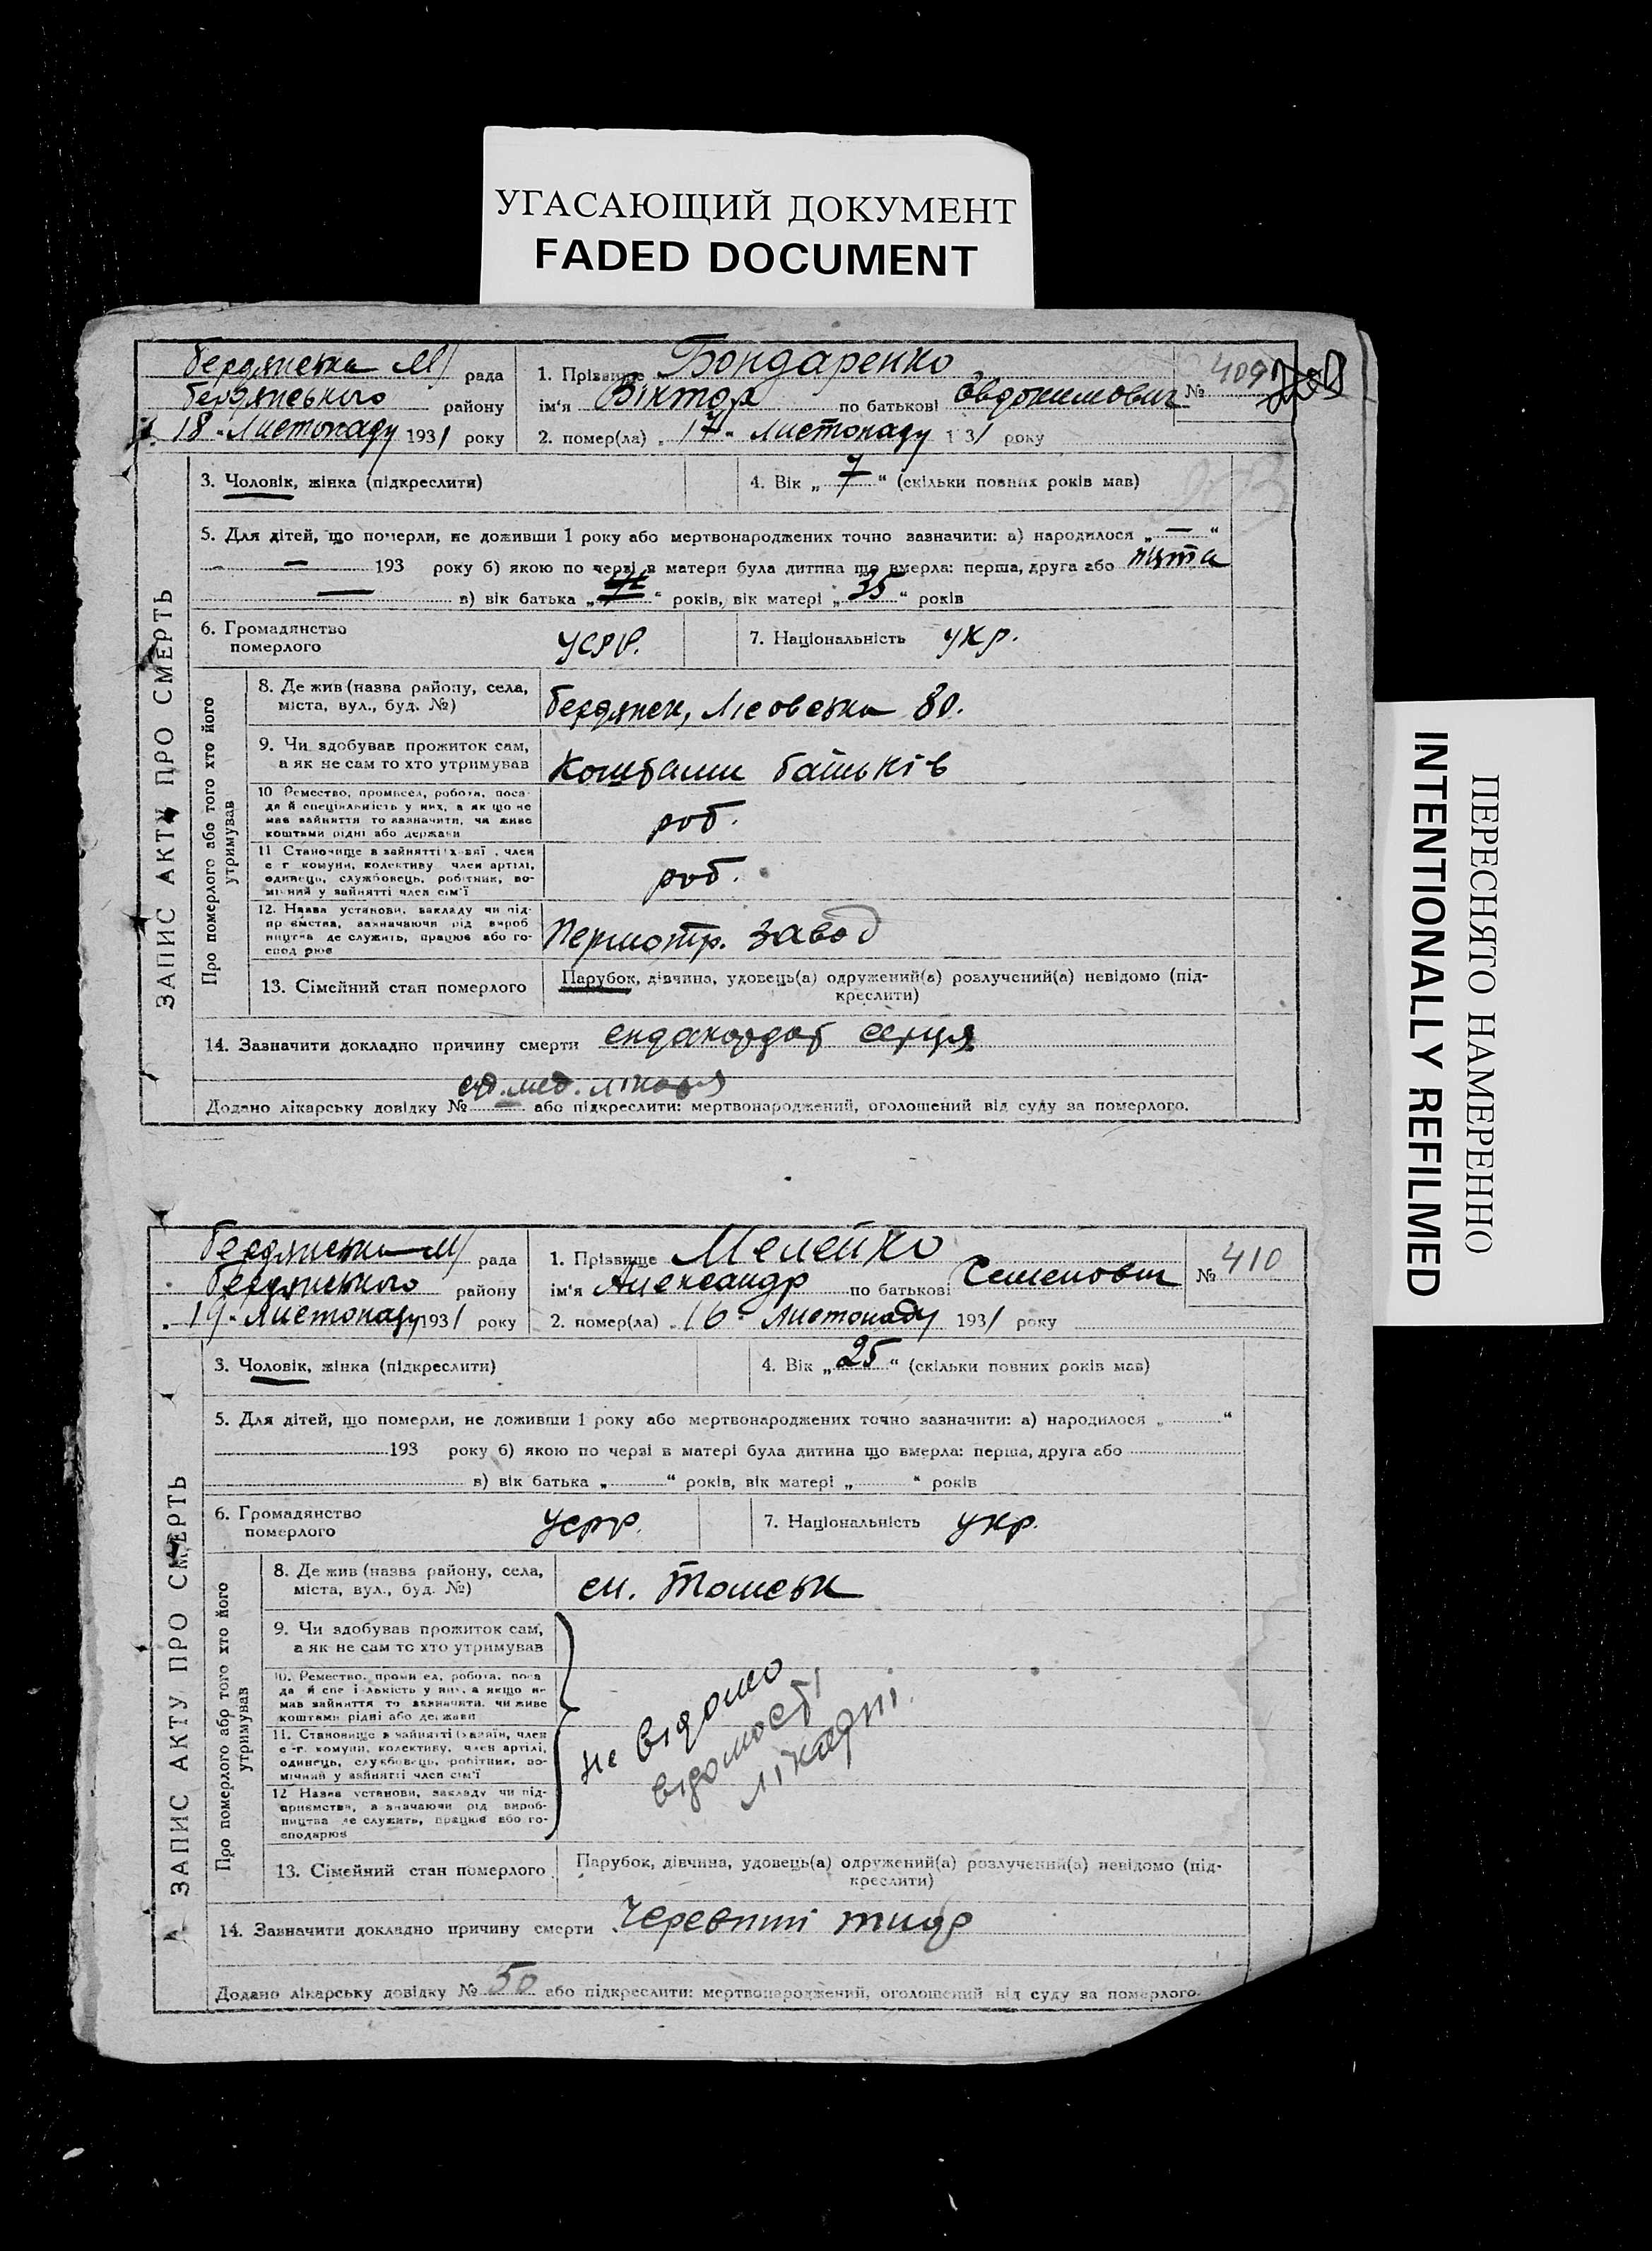 УГАСАЮЩИЙ ДОКУМЕНТ
FADED DOCUMENT
ПЕРЕСНЯТО НАМЕРЕННО
INTENTIONALLY REFILMED
ЗАПИС АКТУ ПРО СМЕРТЬ
Бердянська М/ рада
Бердянського району
18 " Листопаду 1931 року
1. Прізвище Бондаренко
ім'я Віктор по батькові Овдокимович
№ 409
2. помер(ла) " 17 " Листопаду 1 31 року
3. Чоловік, жінка (підкреслити)
4. Вік „ 7 “ (скільки повних років мав)
5. Для дітей, що померли, не доживши 1 року або мертвонароджених точно зазначити: а) народилося „ — “
— 193 року б) якою по черзі в матери була дитина що вмерла: перша, друга або пята
— в) вік батька „ “ років, вік матері „ 35 “ років
6. Громадянство
померлого
УСРР.
7. Національність укр.
Про померлого або того хто його
утримував
8. Де жив (назва району, села,
міста, вул., буд. №)
Бердянск, 80.
9. Чи здобував прожиток сам,
а як не сам то хто утримував
Коштами батьків
10 Ремество, промисел, робота, поса-
да й спеціяльність у них, а як що не
мав зайняття то зазначити, чи живе
коштами рідні або держави
роб.
11 Становище в зайнятті член
с г комуни, колективу член артілі,
одинець, службовець, робітник, по-
мічний у зайнятті член сім'ї
роб.
12. Назва установи, закладу чи під-
приємства, зазначаючи рід вироб
ництва де служить, працює або го-
спод рює
завод
13. Сімейний стан померлого
Парубок, дівчина, удовець(а) одружений(а) розлучений(а) невідомо (під-
креслити)
14. Зазначити докладно причину смерти серця
мед. лікаря
Додано лікарську довідку № або підкреслити: мертвонароджений, оголошений від суду за померлого.
ЗАПИС АКТУ ПРО СМЕРТЬ
Бердянська М/ рада
Бердянського району
" 19 " Листопаду 1931 року
1. Прізвище Мелейко
ім'я Александр по батькові Семенович
№ 410
2. помер(ла) " 16 " Листопаду 1931 року
3. Чоловік, жінка (підкреслити)
4. Вік „ 25 “ (скільки повних років мав)
5. Для дітей, що померли, не доживши 1 року або мертвонароджених точно зазначити: а) народилося „ “
193 року б) якою по черзі в матері була дитина що вмерла: перша, друга або
в) вік батька „ “ років, вік матері „ “ років
6. Громадянство
померлого
УСРР.
7. Національність укр.
Про померлого або того хто його
утримував
8. Де жив (назва району, села,
міста, вул., буд. №)
9. Чи здобував прожиток сам,
а як не сам то хто утримував
10. Ремество, промисел, робота, поса
да й спеціяльність у них, а якщо не
мав зайняття то зазначити, чи живе
коштами рідні або держави
11. Становище в зайнятті (хазяїн, член
с-г. комуни, колективу, член артілі,
одинець, службовець, робітник, по-
мічний у зайнятті член сім'ї
12 Назва установи, закладу чи під-
приємства, зазначаючи рід вироб-
ництва де служить, працює або го-
сподарює
не відомо
відомості
лікарні.
13. Сімейний стан померлого
Парубок, дівчина, удовець(а) одружений(а) розлучений(а) невідомо (під-
креслити)
14. Зазначити докладно причину смерти Черевний тиф
Додано лікарську довідку № 50 або підкреслити: мертвонароджений, оголошений від суду за померлого.